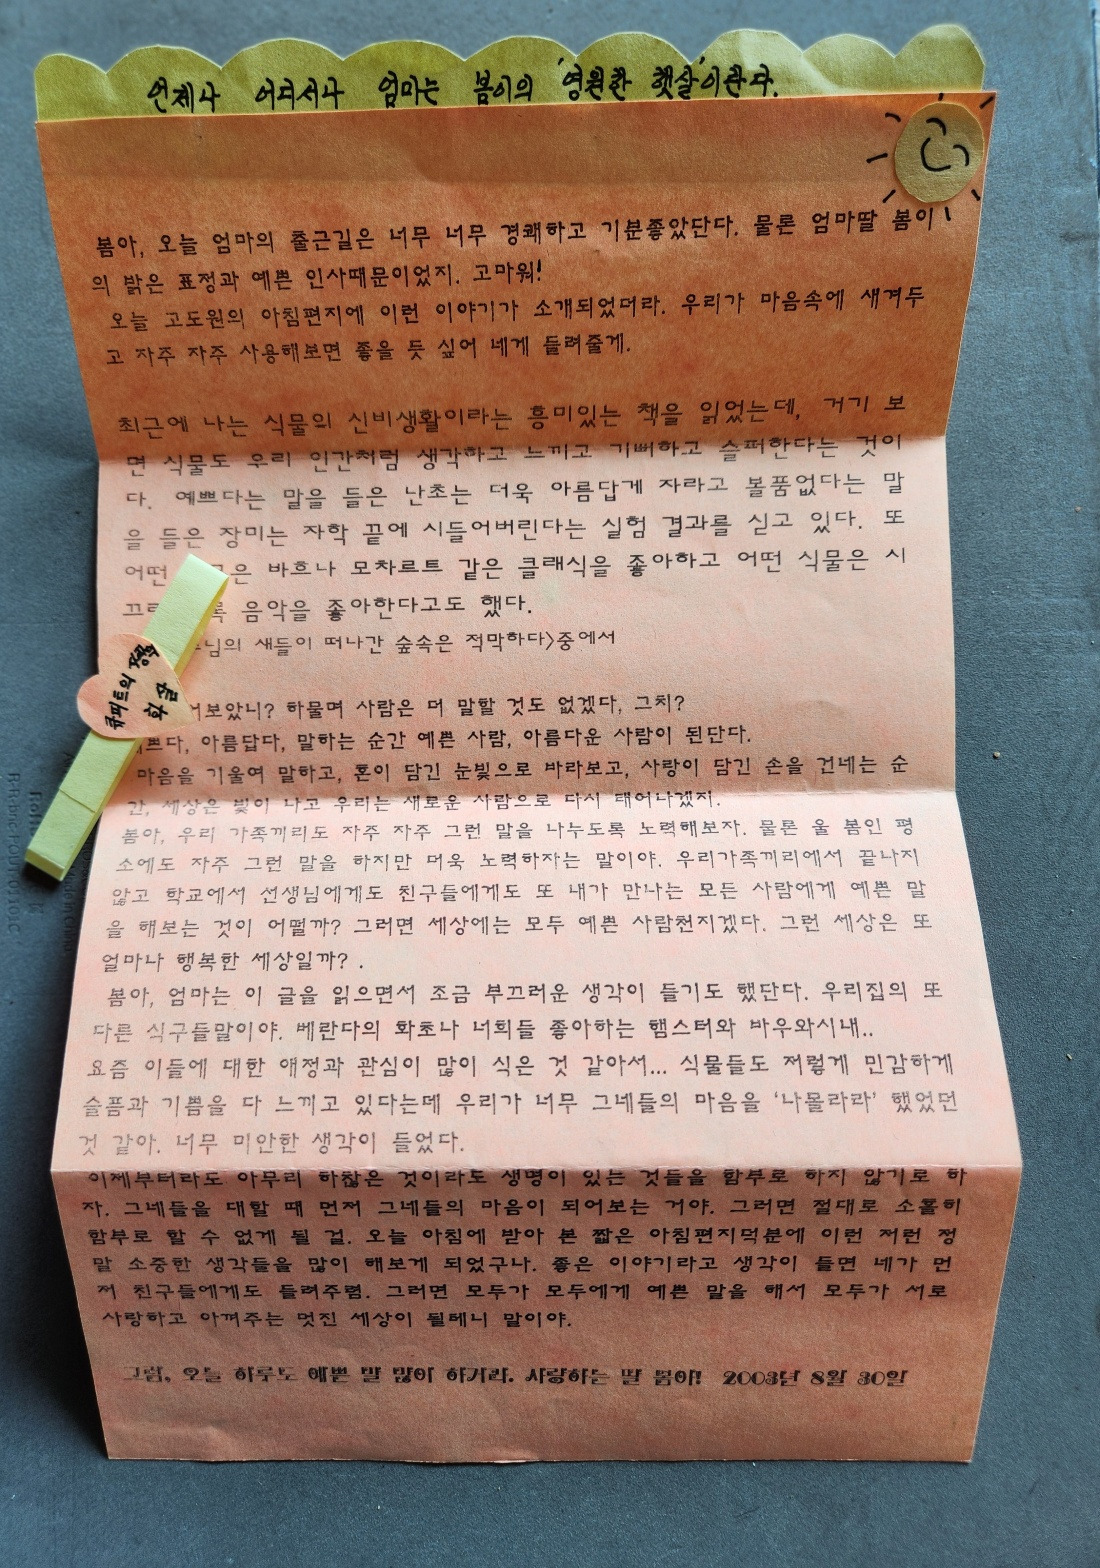 언제나 어디서나 엄마는 봄이의 '영원한 햇살'이란다.
봄아, 오늘 엄마의 출근길은 너무 너무 경쾌하고 기분좋았단다. 물론 엄마딸 봄이
의 밝은 표정과 예쁜 인사때문이었지. 고마워!
오늘 고도원의 아침편지에 이런 이야기가 소개되었더라. 우리가 마음속에 새겨두
고 자주 자주 사용해보면 좋을 듯 싶어 네게 들려줄게.
최근에 나는 식물의 신비생활이라는 흥미있는 책을 읽었는데, 거기 보
면 식물도 우리 인간처럼 생각하고 느끼고 기뻐하고 슬퍼한다는 것이
다. 예쁘다는 말을 들은 난초는 더욱 아름답게 자라고 볼품없다는 말
을 들은 장미는 자학 끝에 시들어버린다는 실험 결과를 싣고 있다. 또
어떤 바흐나 모차르트 같은 클래식을 좋아하고 어떤 식물은 시
음악을 좋아한다고도 했다.
새들이 떠나간 숲속은 적막하다>중에서
하물며 사람은 더 말할 것도 없겠다, 그치?
아름답다, 말하는 순간 예쁜 사람, 아름다운 사람이 된단다.
마음을 기울여 말하고, 혼이 담긴 눈빛으로 바라보고, 사랑이 담긴 손을 건네는 순
간, 세상은 빛이 나고 우리는 새로운 사람으로 다시 태어나겠지.
봄아, 우리 가족끼리도 자주 자주 그런 말을 나누도록 노력해보자. 물론 울 봄인 평
소에도 자주 그런 말을 하지만 더욱 노력하자는 말이야. 우리가족끼리에서 끝나지
않고 학교에서 선생님에게도 친구들에게도 또 내가 만나는 모든 사람에게 예쁜 말
을 해보는 것이 어떨까? 그러면 세상에는 모두 예쁜 사람천지겠다. 그런 세상은 또
얼마나 행복한 세상일까? .
봄아, 엄마는 이 글을 읽으면서 조금 부끄러운 생각이 들기도 했단다. 우리집의 또
다른 식구들말이야. 베란다의 화초나 너희들 좋아하는 햄스터와 바우와시내..
요즘 이들에 대한 애정과 관심이 많이 식은 것 같아서... 식물들도 저렇게 민감하게
슬픔과 기쁨을 다 느끼고 있다는데 우리가 너무 그네들의 마음을 '나몰라라' 했었던
것 같아. 너무 미안한 생각이 들었다.
이제부터라도 아무리 하찮은 것이라도 생명이 있는 것들을 함부로 하지 않기로 하
자. 그네들을 대할 때 먼저 그네들의 마음이 되어보는 거야. 그러면 절대로 소홀히
함부로 할 수 없게 될 걸. 오늘 아침에 받아 본 짧은 아침편지덕분에 이런 저런 정
말 소중한 생각들을 많이 해보게 되었구나. 좋은 이야기라고 생각이 들면 네가 먼
저 친구들에게도 들려주렴. 그러면 모두가 모두에게 예쁜 말을 해서 모두가 서로
사랑하고 아껴주는 멋진 세상이 될테니 말이야.
그럼, 오늘 하루도 예쁜 말 많이 하거라. 사랑하는 딸 봄아! 2003년 8월 30일
큐피트의
화살